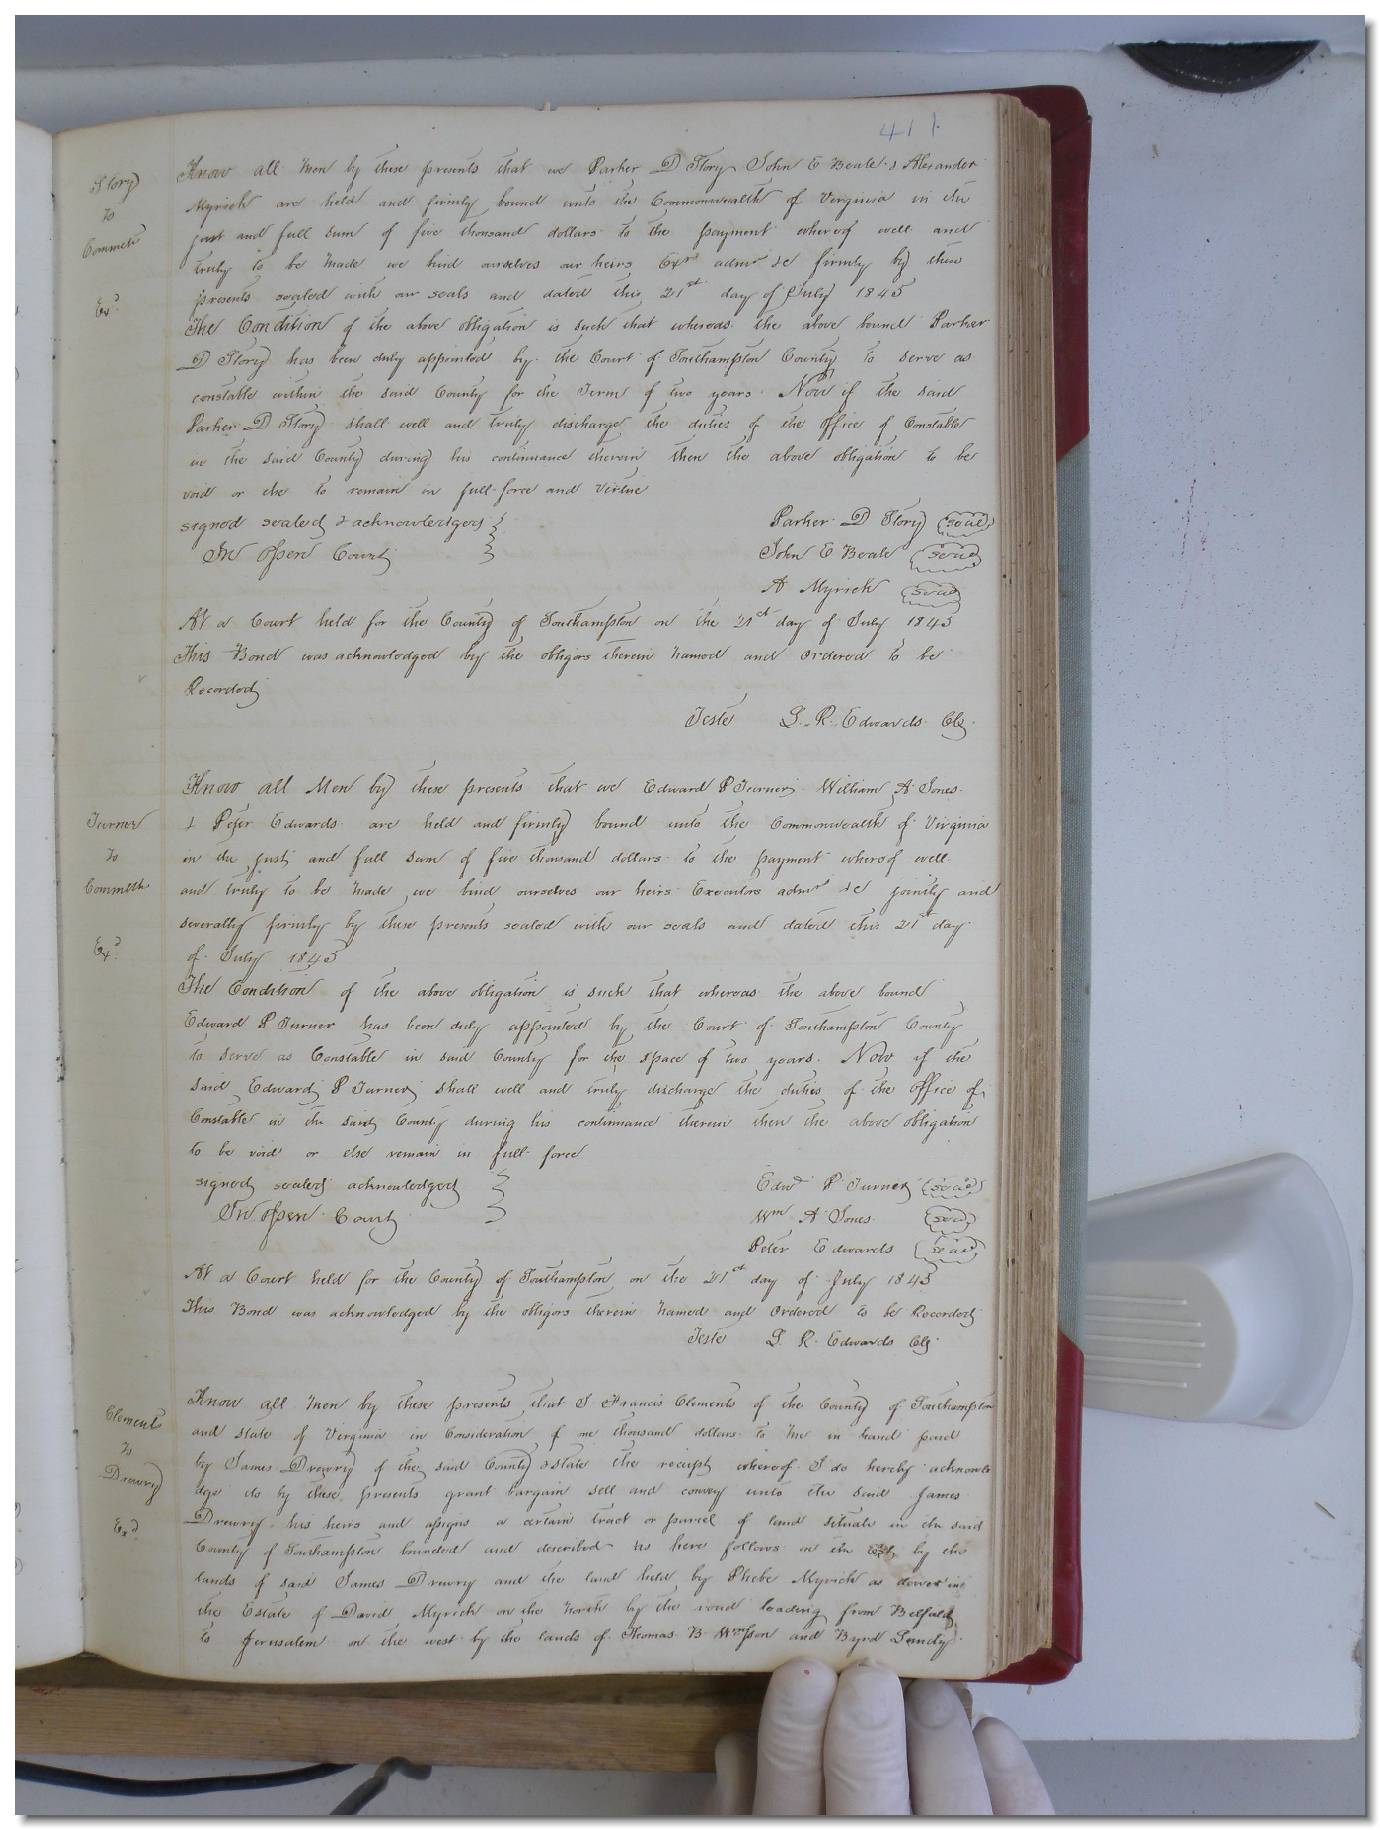 411
Story
to
Commth
Exd
Know all Men by these presents that we Parker D Story John E Beale & Alexander
Myrick are held and firmly bound unto the Commonwealth of Virginia in the
just and full sum of five thousand dollars to the payment wherof well and
truly to be made we bind ourselves our heirs Exrs admrs &c firmly by these
presents sealed with our seals and dated this 21st day of July 1845
The Condition of the above obligation is such that whereas the above bound Parker
D Story has been duly appointed by the Court of Southampton County to serve as
constable within the said County for the Term of two years. Now if the said
Parker D Story shall well and truly discharge the duties of the office of Constable
in the said County during his continuance therein then the above obligation to be
void or else to remain in full force and virtue
signed sealed & acknowledged
In open Court
Parker D Story (seal)
John E Beale (seal)
A Myrick (seal)
At a Court held for the County of Southampton on the 21st day of July 1845
This Bond was acknowledged by the obligors therein named and ordered to be
Recorded
Teste L. R. Edwards Clk
Turner
to
Commth
Exd
Know all Men by these presents that we Edward P Turner William A Jones
& Peter Edwards are held and firmly bound unto the Commonwealth of Virginia
in the just and full sum of five thousand dollars to the payment wherof well
and truly to be made we bind ourselves our heirs Executors admrs &c jointly and
severally firmly by these presents sealed with our seals and dated this 21st day
of July 1845
The Condition of the above obligation is such that whereas the above bound
Edward P Turner has been duly appointed by the Court of Southampton County
to serve as Constable in said County for the space of two years. Now if the
said Edward P Turner shall well and truly discharge the duties of the office of
Constable in the said County during his continuance therein then the above obligation
to be void or else remain in full force
signed sealed acknowledged
In open Court
Edwd P Turner (seal)
Wm A Jones (seal)
Peter Edwards (seal)
At a Court held for the County of Southampton on the 21st day of July 1845
This Bond was acknowledged by the obligors therein named and ordered to be Recorded
Teste L R. Edwards Clk
Clements
to
Drewry
Exd
Know all Men by these presents that I Francis Clements of the County of Southampton
and state of Virginia in Consideration of one thousand dollars to me in hand paid
by James Drewry of the said County & state the receipt wherof I do hereby acknowle
dge do by these presents grant bargain sell and convey unto the said James
Drewry his heirs and assigns a certain tract or parcel of land situate in the said
County of Southampton bounded and described as here follows on the by the
lands of said James Drewry and the land held by Phebe Myrick as dower in
the Estate of David Myrick on the North by the road leading from Belfield
to Jerusalem on the west by the lands of Thomas B and Byrd Lundy